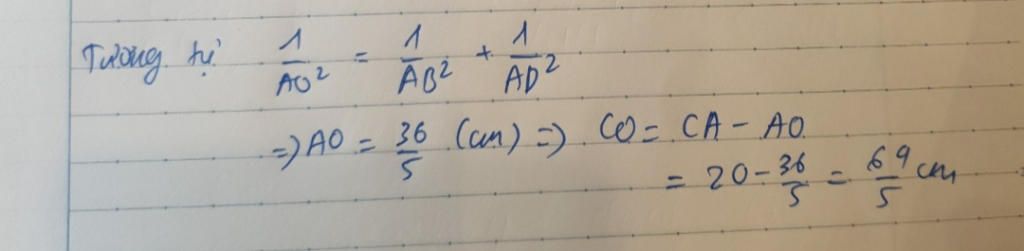 Tương tự 1/AO² = 1/AB² + 1/AD²
=> AO = 36/5 (cm) => CO = CA - AO
= 20 - 36/5 = 69/5 cm